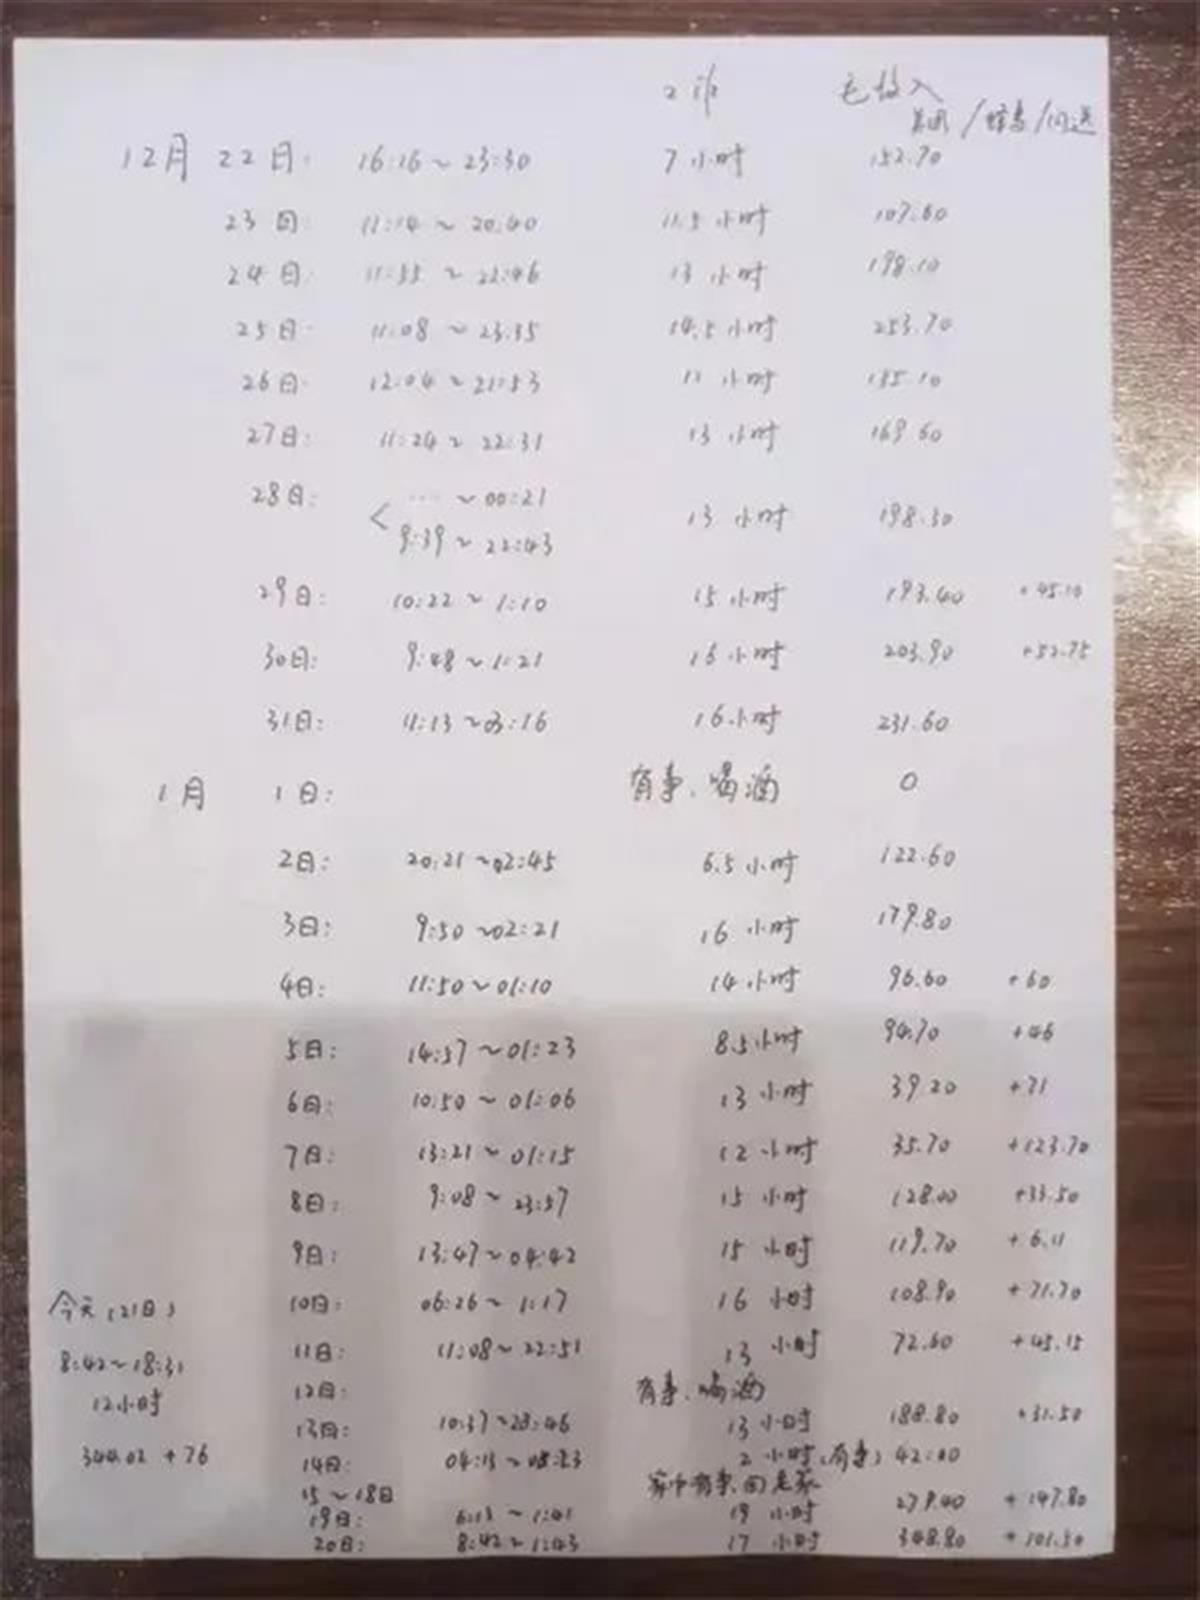 工作 毛收入
美团/蜂鸟/闪送
12月 22日: 16:16~23:30 7小时 152.70
23日: 11:14~20:40 11.5小时 107.60
24日: 11:55~22:46 13小时 198.10
25日: 11:08~23:35 14.5小时 253.70
26日: 12:04~21:53 11小时 135.10
27日: 11:24~22:31 13小时 169.60
28日: < ····~00:21
9:39~22:43 13小时 198.30
29日: 10:22~1:10 15小时 193.40 +45.10
30日: 9:48~1:21 16小时 203.90 +52.75
31日: 11:13~03:16 16小时 231.60
1月 1日: 有事、喝酒 0
2日: 20:21~02:45 6.5小时 122.60
3日: 9:50~02:21 16小时 179.80
4日: 11:50~01:10 14小时 96.60 +60
5日: 14:57~01:23 8.5小时 94.70 +46
6日: 10:50~01:06 13小时 39.20 +71
7日: 13:21~01:15 12小时 35.70 +123.70
8日: 9:08~23:57 15小时 128.00 +33.50
9日: 13:47~04:42 15小时 119.70 +6.11
10日: 06:26~1:17 16小时 108.90 +71.70
11日: 11:08~22:51 13小时 72.60 +45.15
12日: 有事、喝酒
13日: 10:37~23:46 13小时 188.80 +31.50
14日: 04:13~08:23 2小时(有事) 42.00
15~18日 家中有事,回老家
19日: 6:13~1:41 19小时 279.40 +147.80
20日: 8:42~1:43 17小时 348.80 +101.50
今天(21日)
8:42~18:31
12小时
344.02 +76